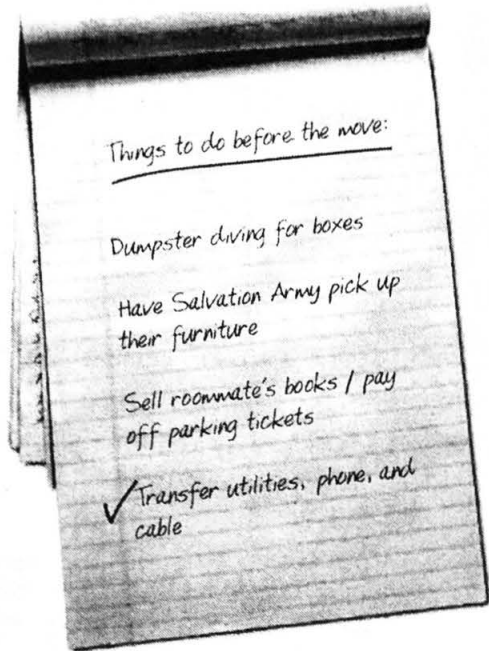 Things to do before the move:
Dumpster diving for boxes
Have Salvation Army pick up
their furniture
Sell roommate's books / pay
off parking tickets
✓Transfer utilities, phone, and
cable